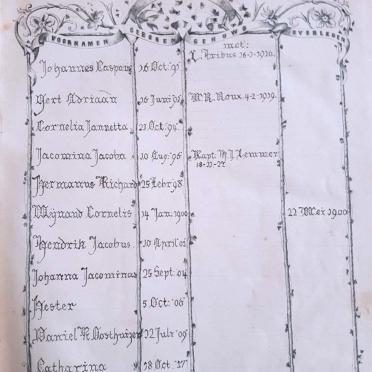 VOORNAMEN GEBOREN GEHUWD OVERLEDEN
met:
Johannes Caspar 16 Oct. '91 L. Fribus 26-3-1920.
Gert Adriaan 16 Juni M.R. Roux. 4-2-1919.
Cornelia Jannetta 21 Oct. '94
Jacomina Jacoba 10 Aug. '96 Kapt. M.J. Lemmer
18-11-22
Hermanus Richard 25 Febr 98
Wijnand Cornelis 14 Jan. 1900 22 Mei 1900
Hendrik Jacobus. 10 April 02
Johanna Jacomina 25 Sept. 04
Hester 5 Oct. '06
Daniel R. Oosthuizen 22 Juli '09
Catharina 18 Oct. '17